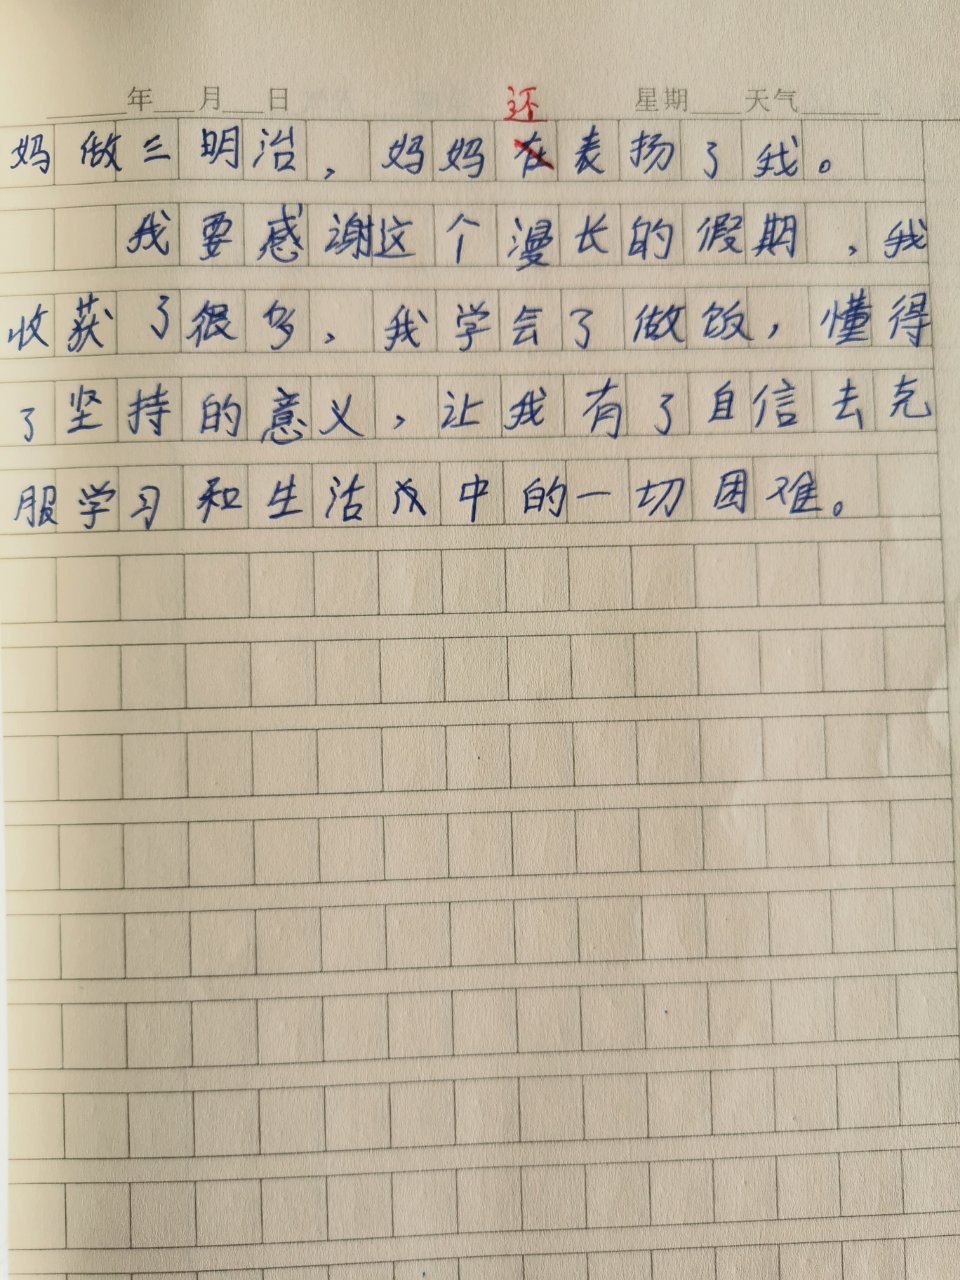 ____年___月___日 还 星期___天气_____
妈做三明治，妈妈在表扬了我。
我要感谢这个漫长的假期，我
收获了很多，我学会了做饭，懂得
了坚持的意义，让我有了自信去克
服学习和生活中的一切困难。